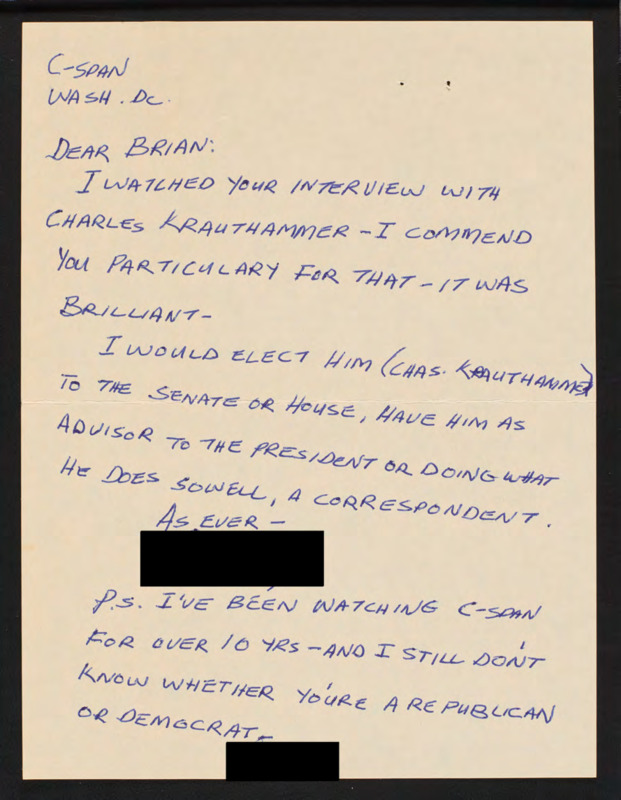 C-SPAN
WASH. DC.
DEAR BRIAN:
I WATCHED YOUR INTERVIEW WITH
CHARLES KRAUTHAMMER - I COMMEND
YOU PARTICULARY FOR THAT - IT WAS
BRILLIANT -
I WOULD ELECT HIM (CHAS. KRAUTHAMMER)
TO THE SENATE OR HOUSE, HAVE HIM AS
ADVISOR TO THE PRESIDENT OR DOING WHAT
HE DOES SOWELL, A CORRESPONDENT.
AS EVER -
P.S. I'VE BEEN WATCHING C-SPAN
FOR OVER 10 YRS - AND I STILL DON'T
KNOW WHETHER YOU'RE A REPUBLICAN
OR DEMOCRAT -